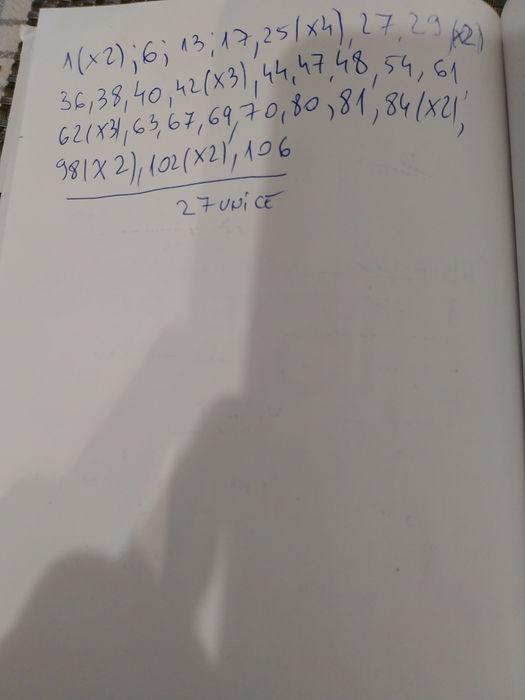 1(x2); 6; 13; 17, 25(x4), 27, 29(x2)
36, 38, 40, 42(x3), 44, 47, 48, 54, 61
62(x3), 63, 67, 69, 70, 80, 81, 84(x2),
98(x2), 102(x2), 106
27 UNICE